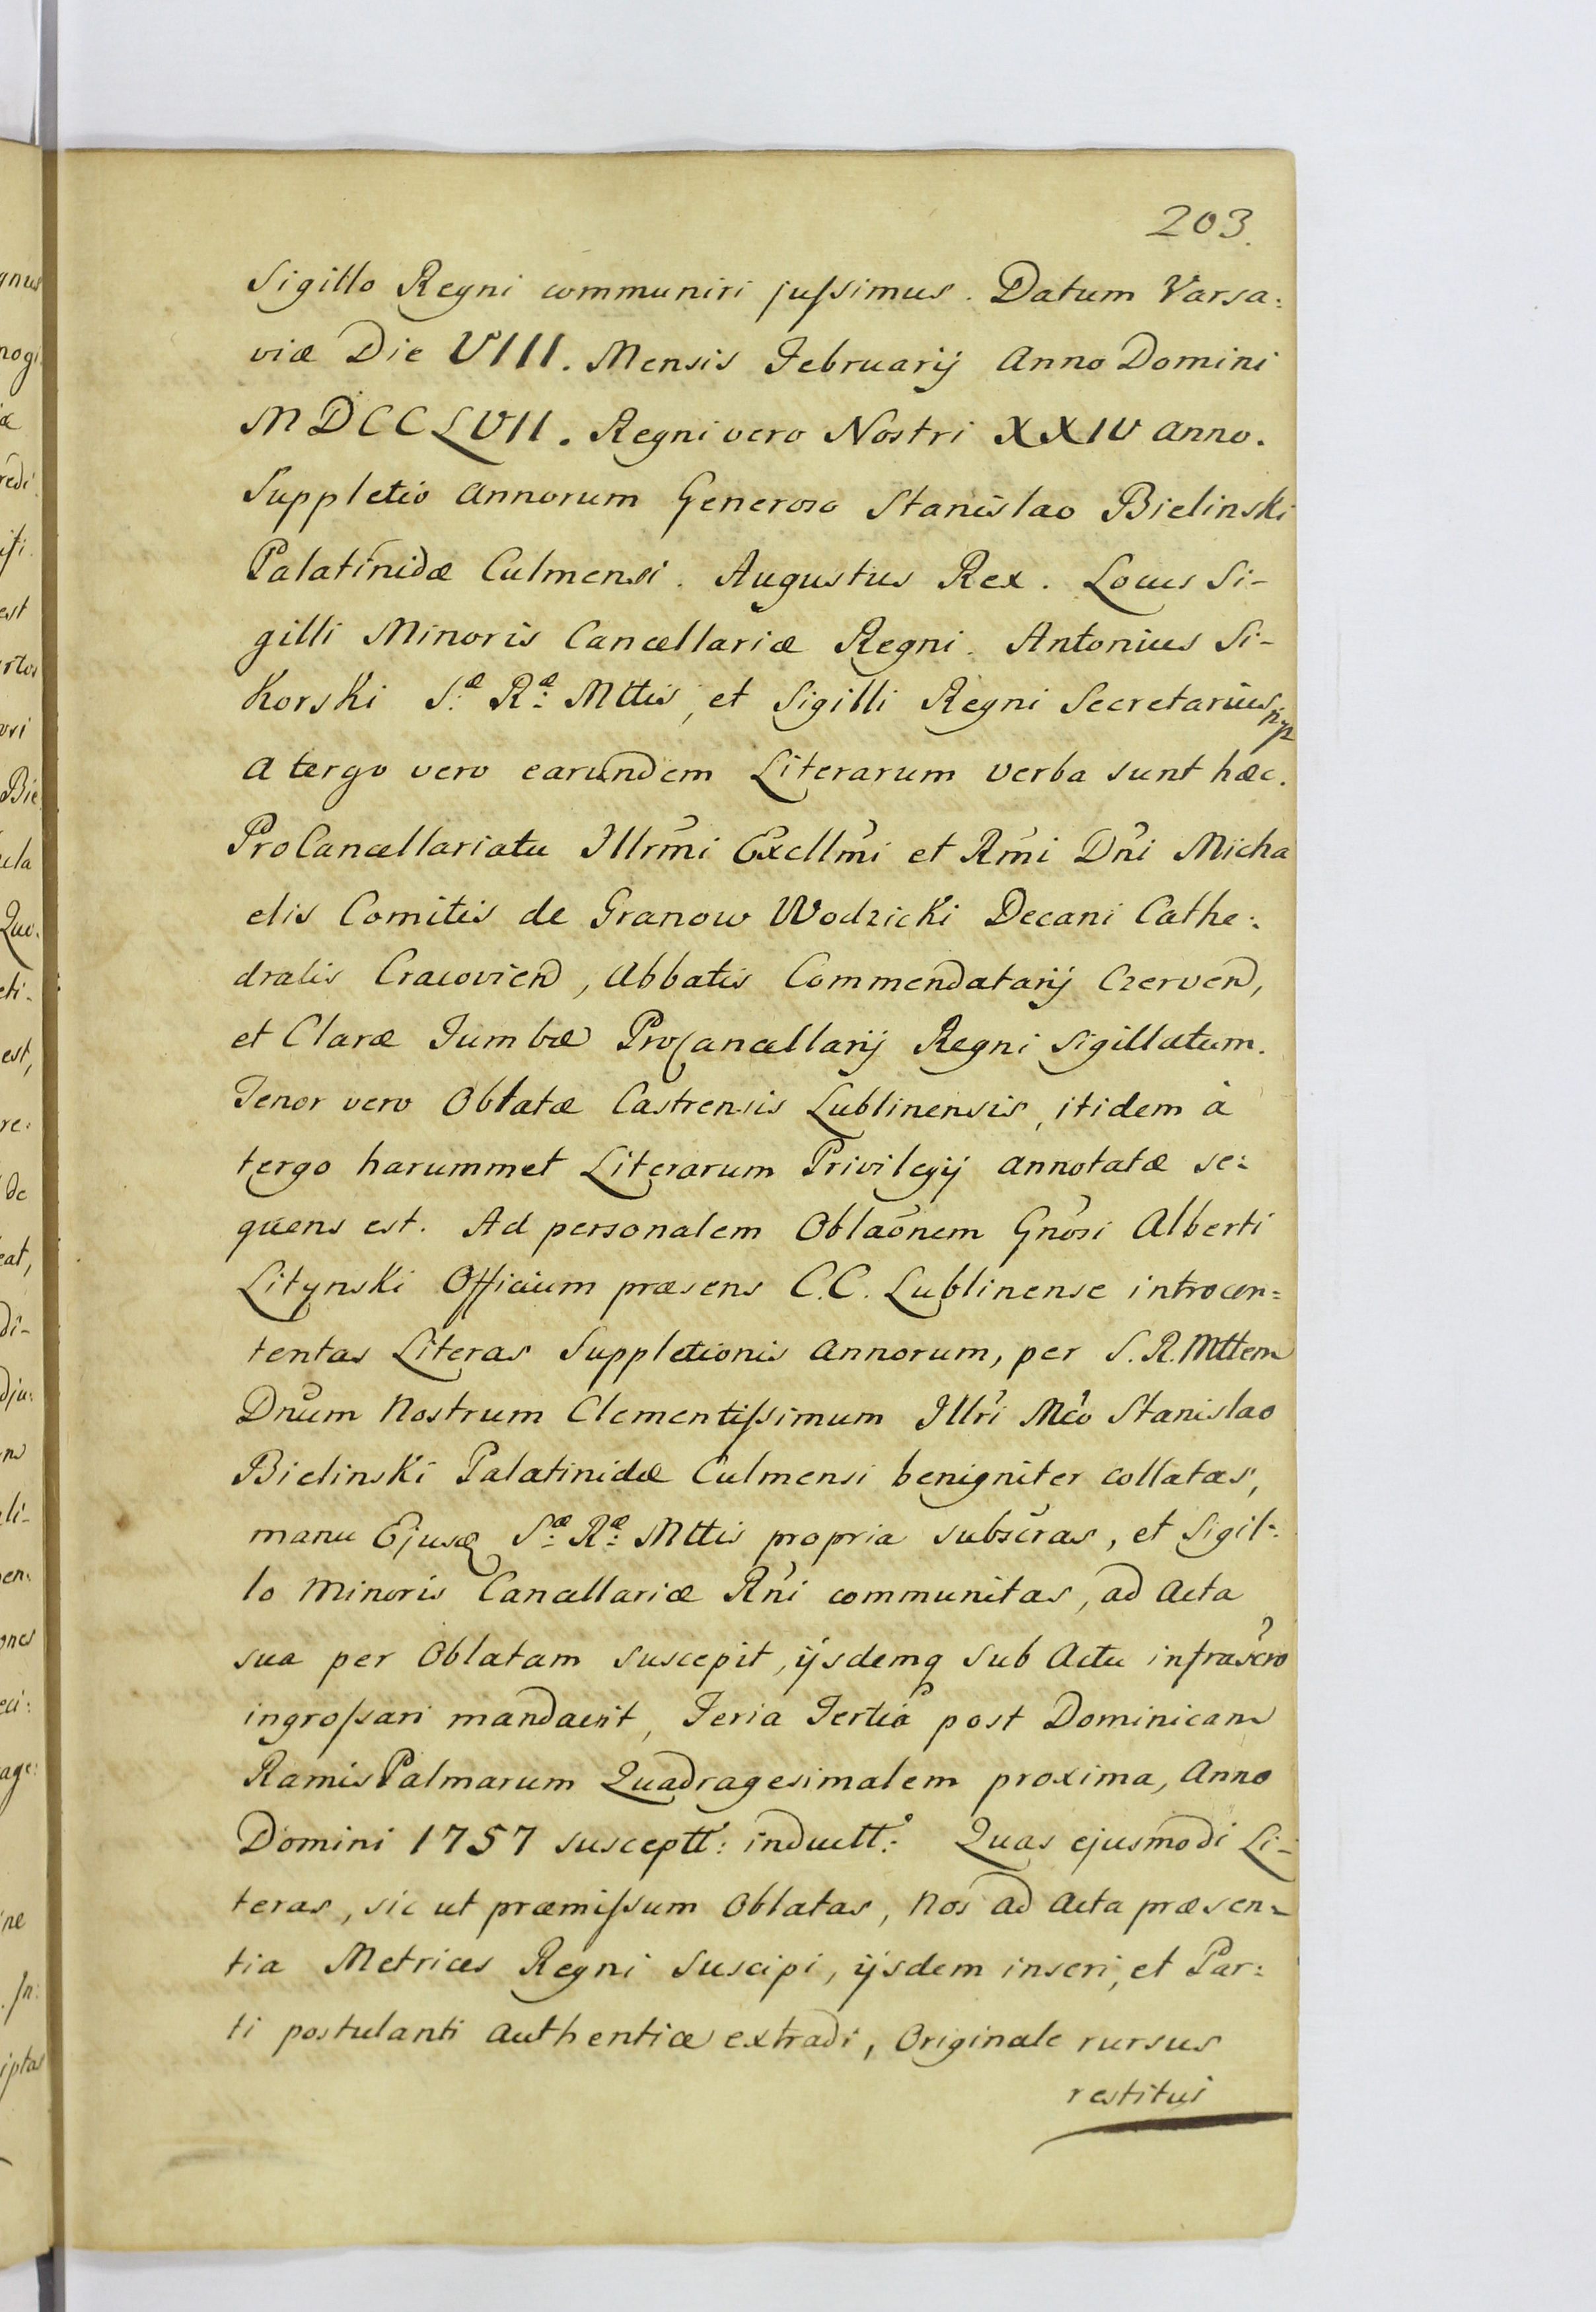 203.
Sigillo Regni communiri jussimus. Datum Varsa:
viæ Die VIII. Mensis Februarij Anno Domini
MDCCLVII. Regni vero Nostri XXIV anno.
Suppletio Annorum Generoso Stanislao Bielinski
Palatinidæ Culmensi. Augustus Rex. Locus Si-
gilli Minoris Cancellariæ Regni. Antonius Si-
Korski S.æ R.æ Mttis, et Sigilli Regni Secretarius mp
A tergo vero earundem Literarum verba sunt hæc.
ProCancellariatu Illrmi Excllmi et Rmi Dni Micha
elis Comitis de Granow Wodzicki Decani Cathe:
dralis Cracovien, Abbatis Commendatarij Czerven,
et Claræ Tumbæ ProCancellarij Regni Sigillatum.
Tenor vero Oblatæ Castrensis Lublinensis, itidem à
tergo harummet Literarum Privilegij annotatæ se:
quens est. Ad personalem Oblaonem Gnosi Alberti
Litynski Officium præsens C.C. Lublinense introcon=
tentas Literas Suppletionis Annorum, per S.R.Mttem
Dnum Nostrum Clementissimum Illri Mco Stanislao
Bielinski Palatinidæ Culmensi benigniter collatas,
manu Ejusq S.æ R.æ Mttis propria subscras, et Sigil:
lo Minoris Cancellariæ Rni communitas, ad Acta
sua per Oblatam suscepit, ijsdemq sub Actu infrascro
ingrossari mandavit, Feria Tertia post Dominicam
Ramis Palmarum Quadragesimalem proxima, Anno
Domini 1757 susceptt: inductt: Quas ejusmodi Li-
teras, sic ut præmissum Oblatas, Nos ad Acta præsen=
tia Metrices Regni Suscipi, ijsdem inseri, et Par:
ti postulanti Authentice extradi, Originale rursus
restitui